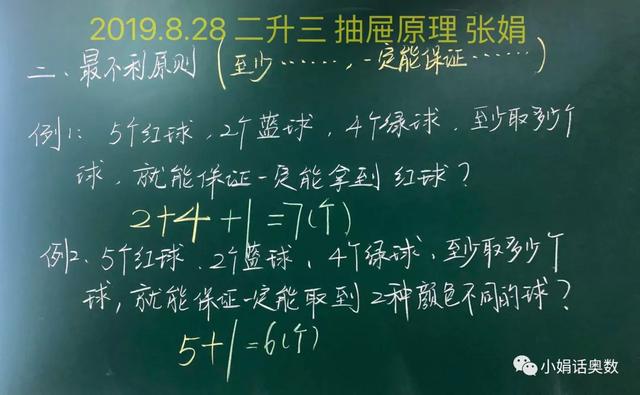 2019.8.28 二升三 抽屉原理 张娟
二、最不利原则(至少……,一定能保证……)
例1: 5个红球,2个蓝球,4个绿球,至少取多少个
球,就能保证一定能拿到红球?
2+4+1=7(个)
例2、5个红球、2个蓝球、4个绿球、至少取多少个
球,就能保证一定能取到2种颜色不同的球?
5+1=6(个)
小娟话奥数